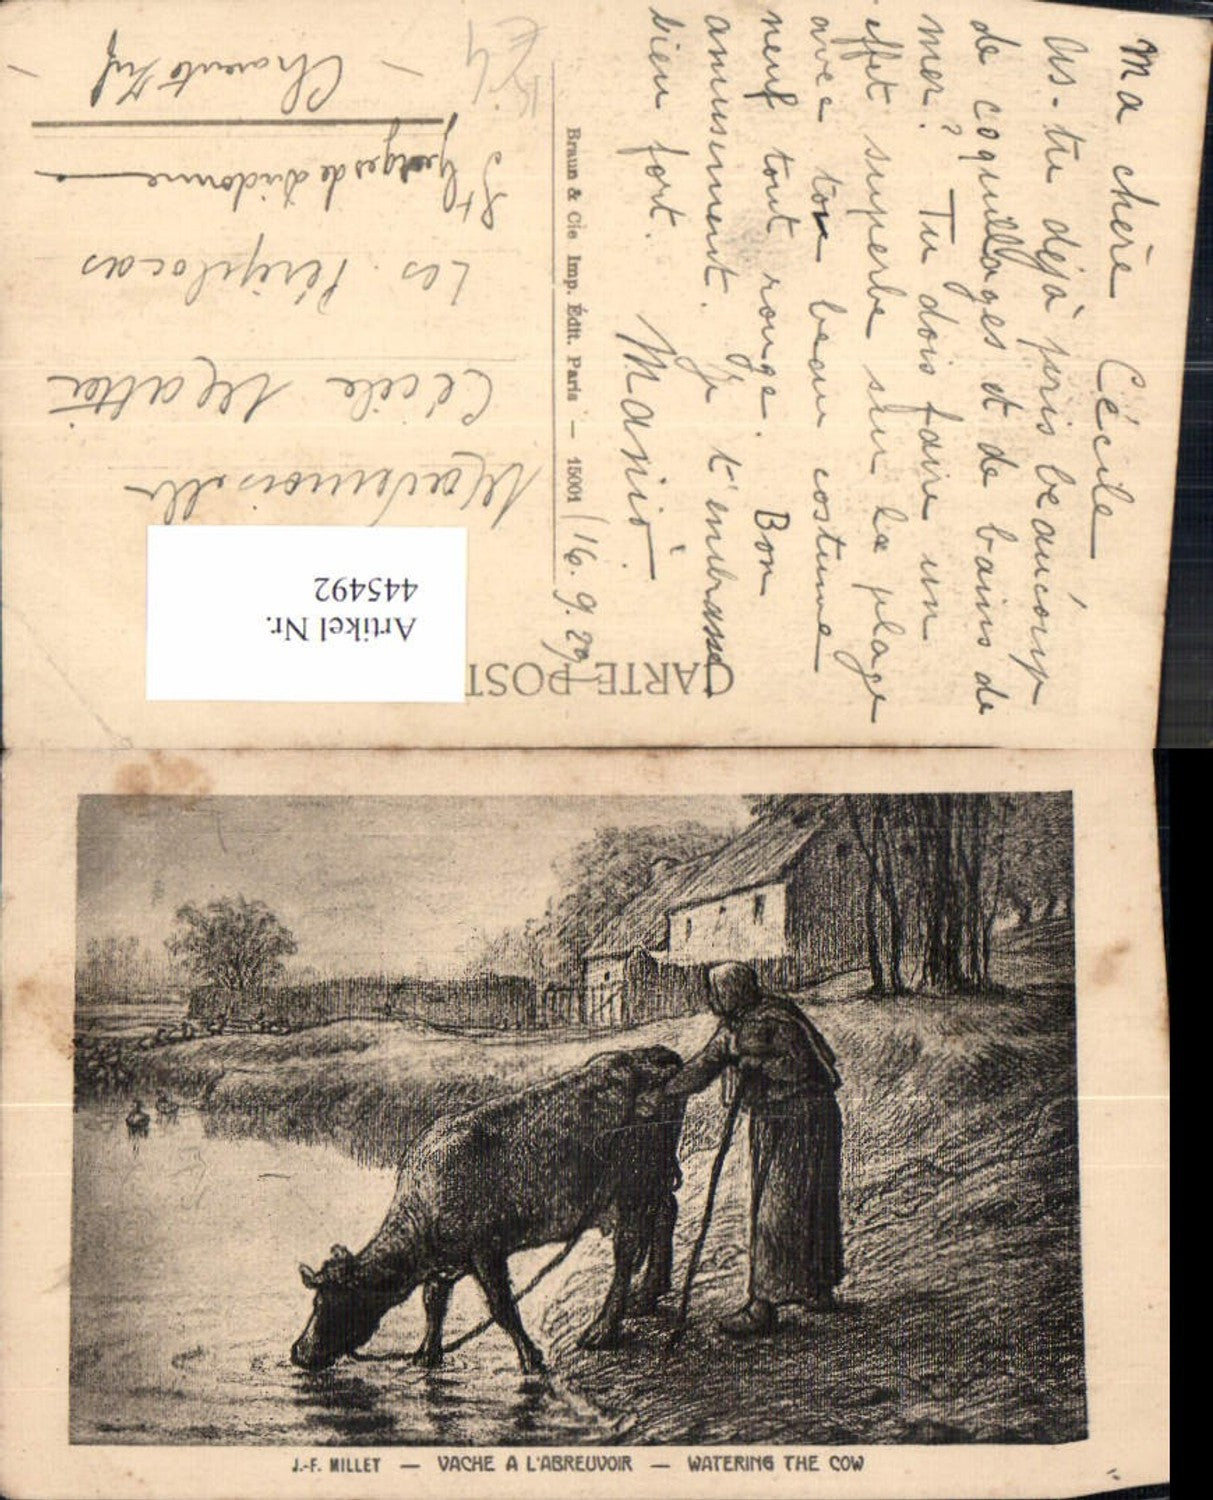 Ma chère Cécile
As-tu déjà pris beaucoup
de coquillages et de bains de
mer? Tu dois faire un
effet superbe sur la plage
avec ton beau costume
neuf tout rouge. Bon
amusement. Je t'embrasse
bien fort.
16.9.29
CARTE POST
Braun & Cie Imp. Édit. Paris — 15001
Mademoiselle
Cécile
Les
St Georges de didonne
Charente Inf
Artikel Nr.
445492
J.-F. MILLET — VACHE A L'ABREUVOIR — WATERING THE COW